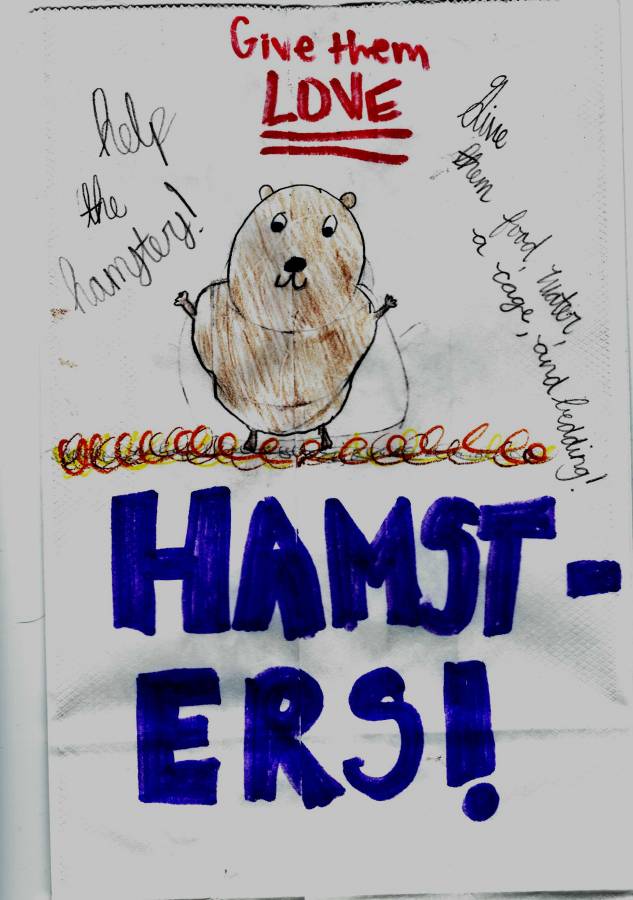 Give them
LOVE
help
the
hamstery!
Give
them food, water,
a cage, and bedding!
HAMST-
ERS!